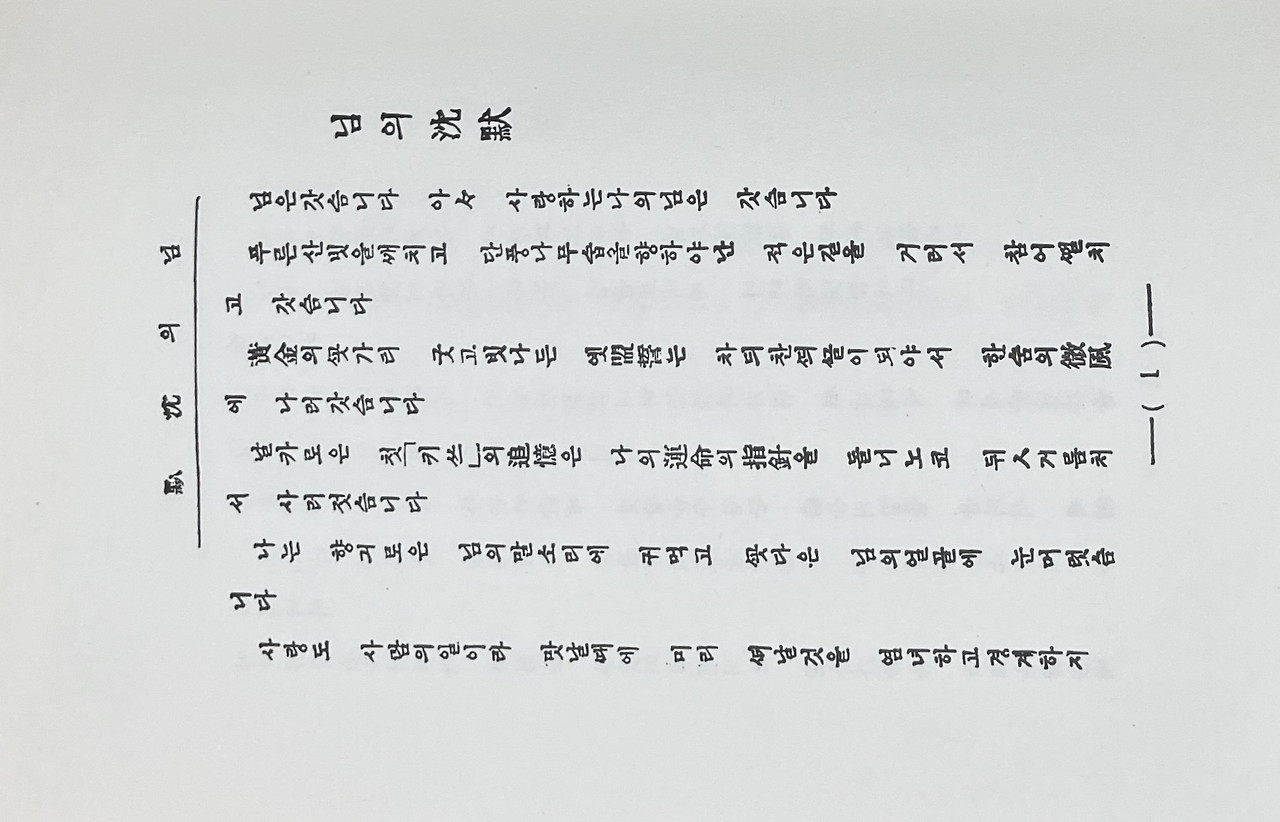 님의沈默
님은갓슴니다 아々 사랑하는나의님은 갓슴니다
푸른산빗을ᄭᅢ치고 단풍나무숩을향하야난 적은길을 거러서 참어ᄯᅥᆯ치
고 갓슴니다
黃金의ᄭᅩᆺ가티 굿고빗나든 옛盟誓는 차듸찬ᄯᅴᄭᅳᆯ이되야서 한숨의微風
에 나러갓슴니다
날카로은 첫「키쓰」의追憶은 나의運命의指針을 돌너노코 뒤ㅅ거름처
서 사러젓슴니다
나는 향긔로은 님의말소리에 귀먹고 ᄭᅩᆺ다은 님의얼골에 눈머럿슴
니다
사랑도 사람의일이라 맛날ᄯᅢ에 미리 ᄯᅥ날것을 염녀하고경계하지
님의沈默
( 1 )